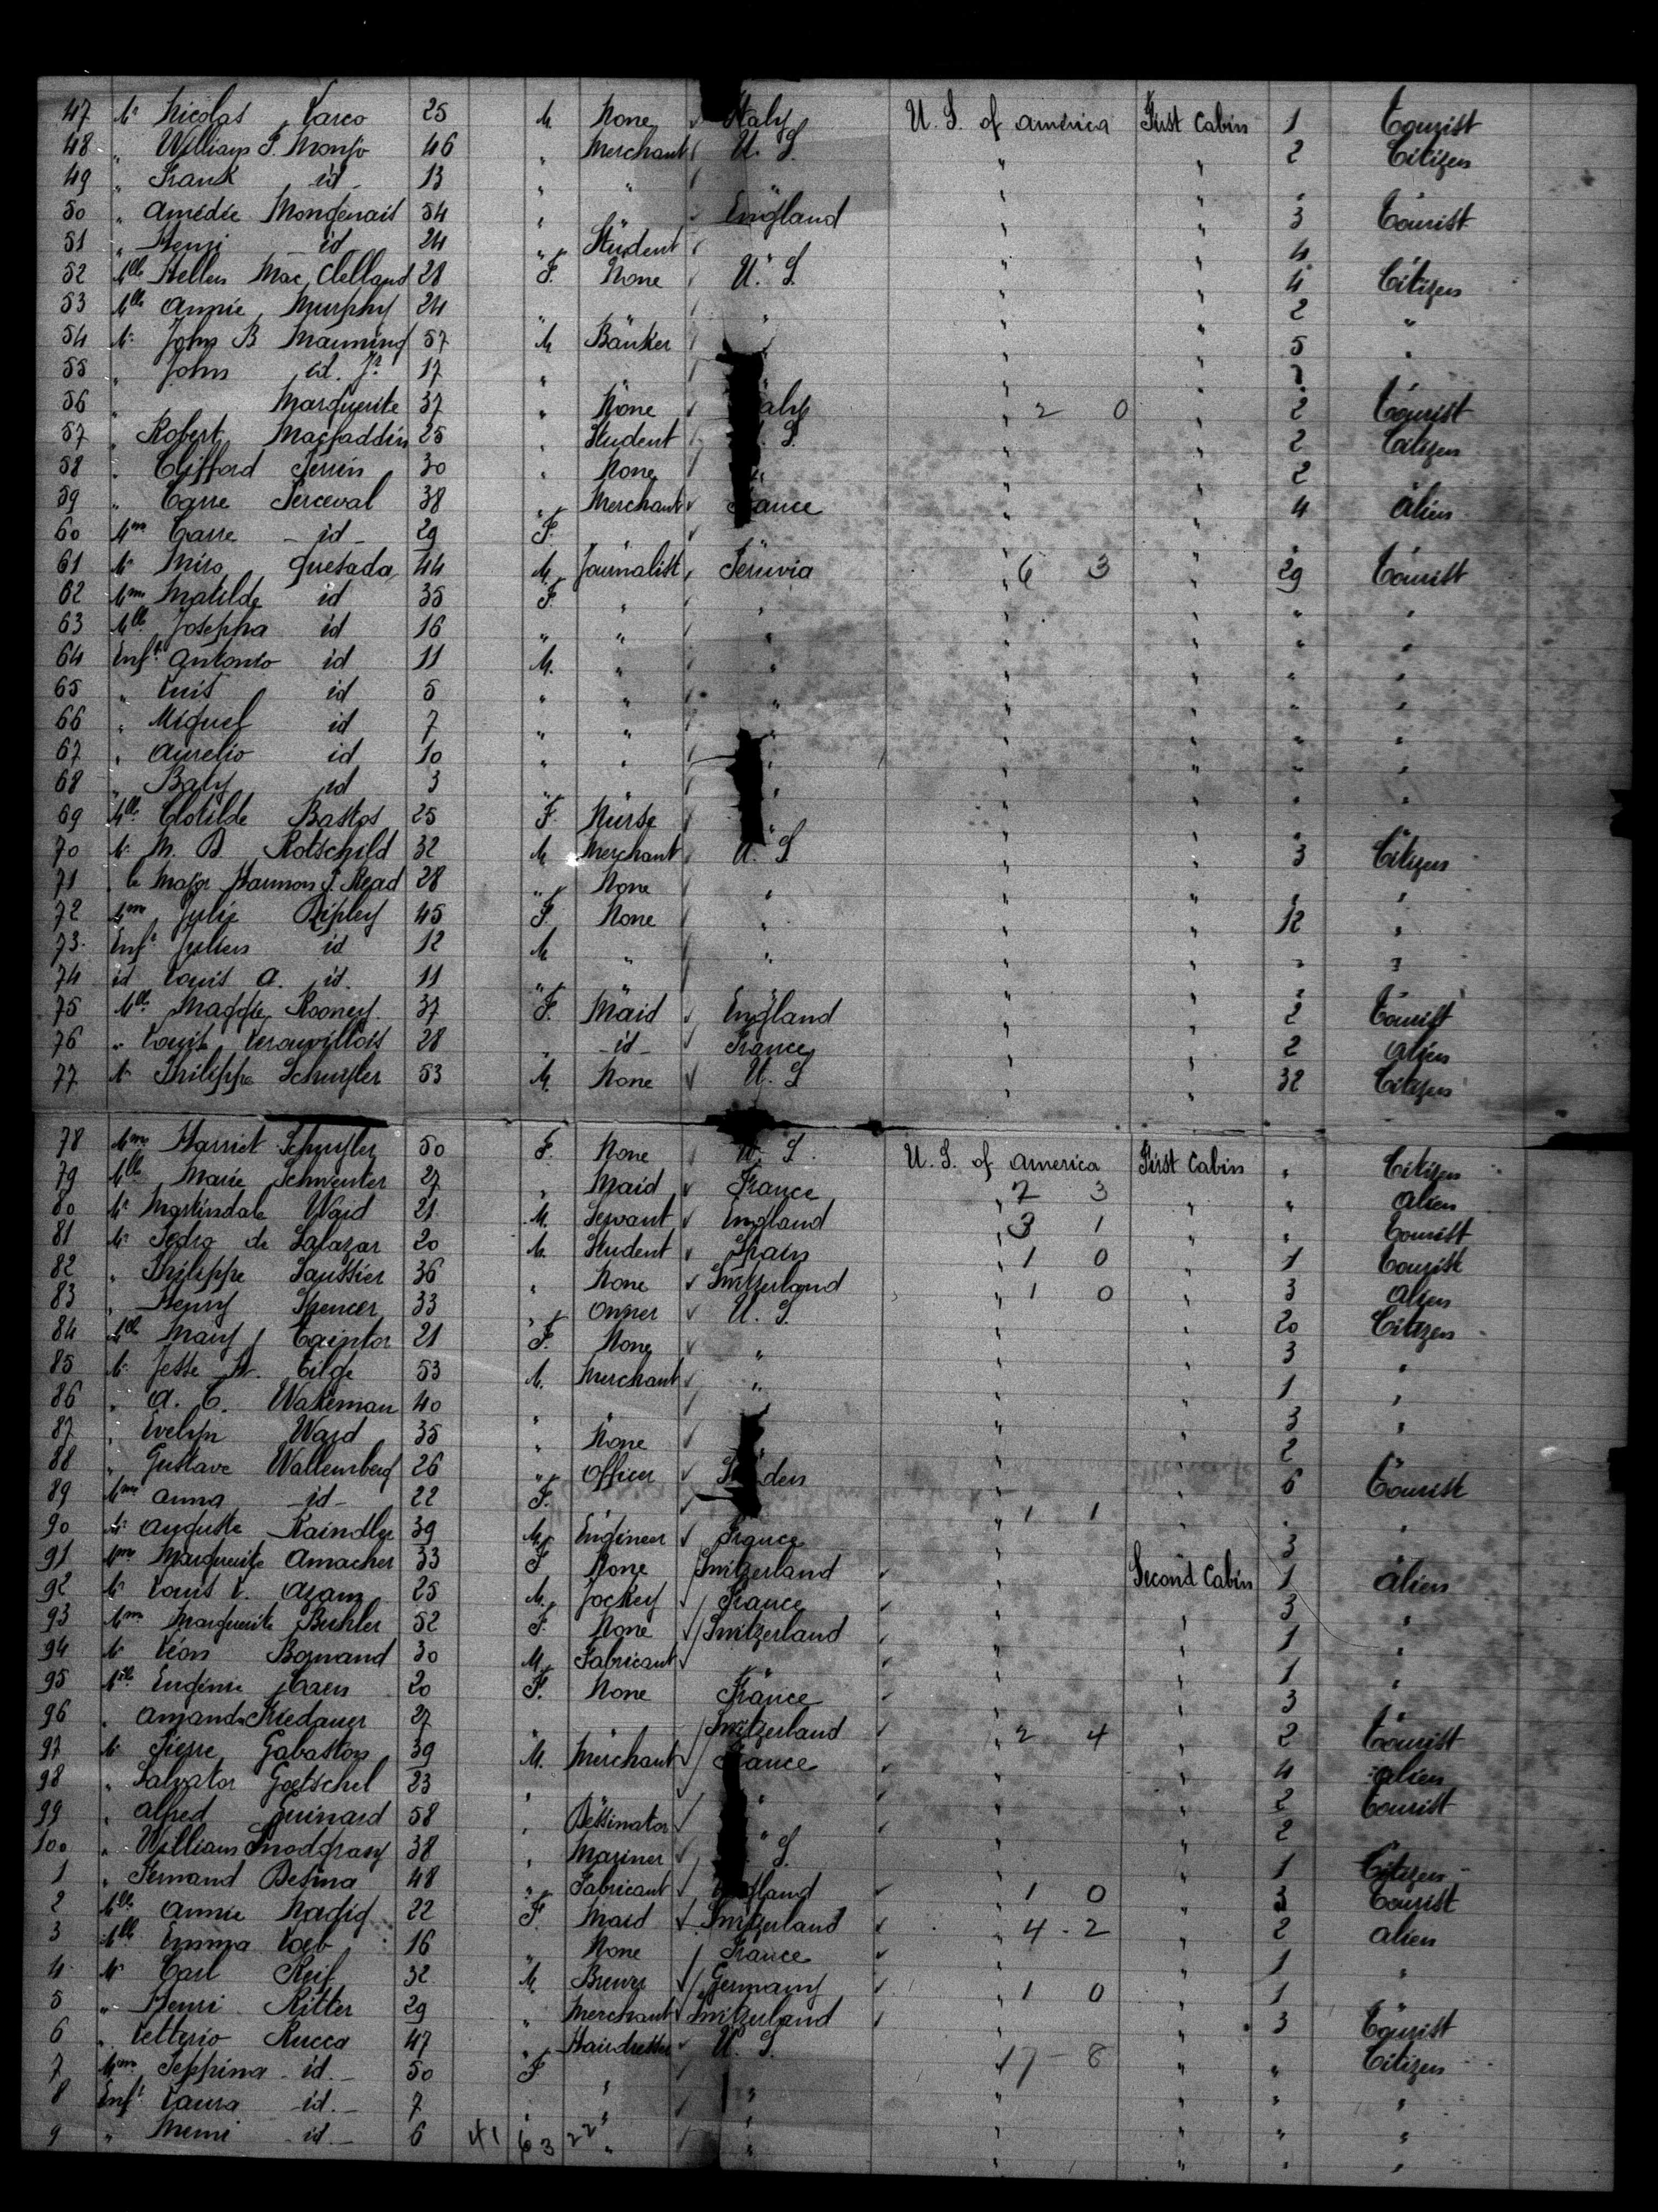 47 Mr Nicolas Varco 25 M. None Italy U. S. of America First Cabin 1 Tourist
48 " William P. Monjo 46 " Merchant U. S. " " 2 Citizen
49 " Frank id 13 " " " "
50 " Amédée Mongenais 54 " England " " 3 Tourist
51 " Henri id 24 " Student " " 4
52 Mlle Hellen Mac Clelland 28 F. None U. S. " " 4 Citizen
53 Mlle Annie Murphy 24 " " " " 2 "
54 Mr John B Manning 57 M Banker " " " 5 "
55 " John id. Jr 17 " " "
56 " Marguerite 37 " None " 2 0 " 2 Tourist
57 " Robert Macfaddin 25 " Student S. " " 2 Citizen
58 " Clifford Perrin 30 " None " " " 2
59 " Carre Perceval 38 " Merchant France " " 4 Alien
60 Mme Carre - id - 29 F. " "
61 Mr Miro Quesada 44 M. Journalist Peruvia " 6 3 " 29 Tourist
62 Mme Matilde id 35 F. " " " " " "
63 Mlle Josepha id 16 " " " " " " "
64 Enft Antonio id 11 M. " " " " " "
65 " Luis id 5 " " " " " " "
66 " Miguel id 7 " " " " " "
67 " Aurelio id 10 " " " " " " "
68 " Baly id 3 " " " " " " "
69 Mlle Clotilde Bastos 25 F. Nurse " " "
70 Mr M. D. Rotschild 32 M Merchant U. S " " 3 Citizen
71 " le Major Harmon P. Read 28 " None " " " " "
72 Mme Julie Ripley 45 F. None " " " 12 "
73 Enft Julien id 12 M " " " " " "
74 id Louis A. id. 11 " " " "
75 Mlle Maggie Rooney 37 F. Maid England " " 2 Tourist
76 " Louise 28 " - id - France " " 2 Alien
77 Mr Philippe Schuyler 53 M. None U. S " " 32 Citizen
78 Mme Harriet Schuyler 50 F. None U. S. U. S. of America First Cabin " Citizen
79 Mlle Marie Schwenter 27 " Maid France " 7 3 " " Alien
80 Mr Martinsdale Waid 21 M. Servant England " 3 1 " " Tourist
81 Mr Pedro de Salazar 20 M. Student Spain " 1 0 " 1 Tourist
82 " Philippe Saussier 36 " None Switzerland " 1 0 " 3 Alien
83 " Henry Spencer 33 " Owner U. S. " " 20 Citizen
84 Mlle Mary Taintor 21 F. None " " " 3 "
85 Mr Jesse H. Tilge 53 M. Merchant " " " 1 "
86 " A. C. Wakeman 40 " " " 3 "
87 " Evelyn Ward 35 " None " " 2
88 " Gustave Wallemberg 26 " Officer Sweden " " 6 Tourist
89 Mme Anna - id - 22 F. " 1 1 " " "
90 Mr Auguste Kaindlye 39 M. Engineer France " 3
91 Mme Marguerite Amacher 33 F None Switzerland " Second Cabin 1 Alien
92 Mr Louis L. Azam 25 M. Jockey France " " 3 "
93 Mme Marguerite Buhler 52 F. None Switzerland " " 1 "
94 Mr Léon Bornand 30 M. Fabricant " " 1 "
95 Mlle Eugénie 20 F. None France " " 3
96 " Amanda Friedauer 27 " Switzerland " 2 4 " 2 Tourist
97 Mr Pierre Gabaston 39 M. Merchant France " " 4 Alien
98 " Salvator Goetschel 23 " " " " 2 Tourist
99 " Alfred Guinard 58 " Dessinator " " 2
100 " William Snodgrass 38 " Mariner S. " " 1 Citizen
1 " Fernand Desma 48 " Fabricant England " 1 0 " 3 Tourist
2 Mlle Annie Nadig 22 F. Maid Switzerland " 4 - 2 " 2 Alien
3 Mlle Emma Loeb 16 " None France " " 1 "
4 Mr Carl Reif 32 M. Brewer Germany " 1 0 " 1
5 " Henri Ritter 29 " Merchant Switzerland " " 3 Tourist
6 " Letterio Rucca 47 " Hairdresser U. S. 17 - 8 " " Citizen
7 Mme Peppina - id. - 50 F " " " " " "
8 Enft Laura - id. - 7 " " " " " " "
9 " Memi - id. - 6 41 63 22 " " " " " "